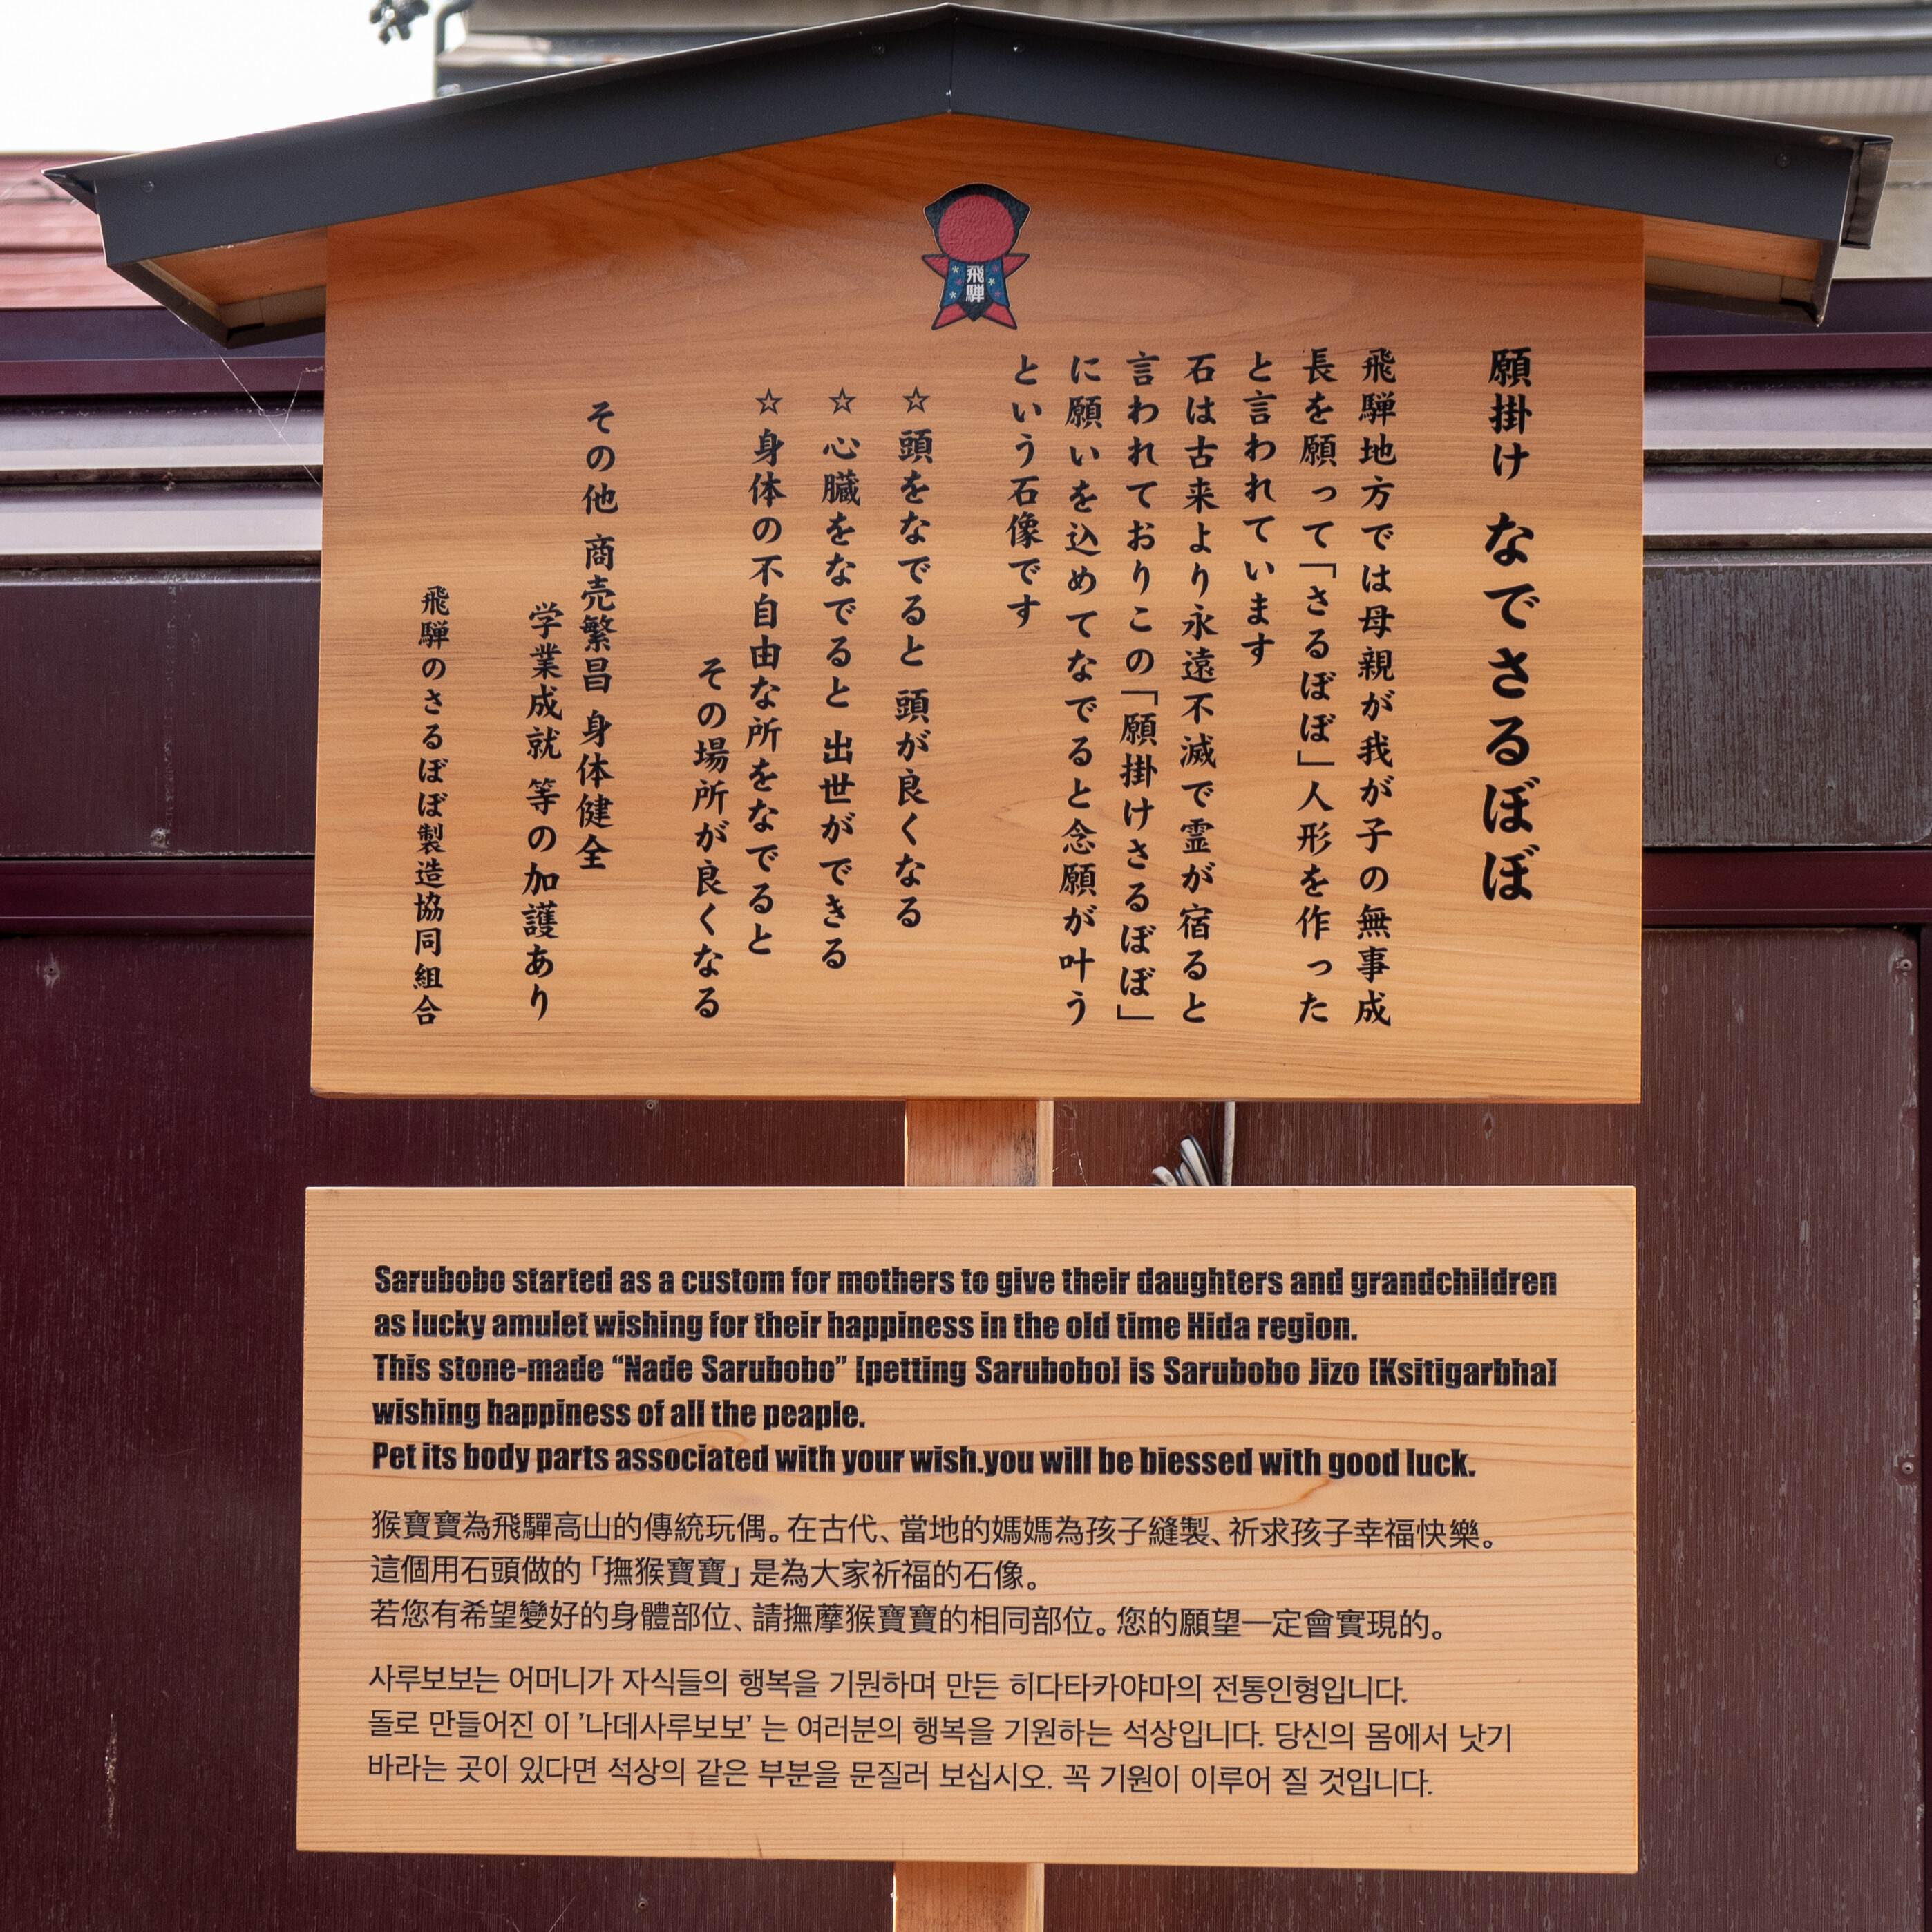 飛騨
願掛け なでさるぼぼ
飛騨地方では母親が我が子の無事成
長を願って「さるぼぼ」人形を作った
と言われています
石は古来より永遠不滅で霊が宿ると
言われておりこの「願掛けさるぼぼ」
に願いを込めてなでると念願が叶う
という石像です
☆頭をなでると 頭が良くなる
☆心臓をなでると 出世ができる
☆身体の不自由な所をなでると
その場所が良くなる
その他 商売繁昌 身体健全
学業成就 等の加護あり
飛騨のさるぼぼ製造協同組合
Sarubobo started as a custom for mothers to give their daughters and grandchildren
as lucky amulet wishing for their happiness in the old time Hida region.
This stone-made “Nade Sarubobo” [petting Sarubobo] is Sarubobo Jizo [Ksitigarbha]
wishing happiness of all the peaple.
Pet its body parts associated with your wish.you will be biessed with good luck.
猴寶寶為飛驒高山的傳統玩偶。在古代、當地的媽媽為孩子縫製、祈求孩子幸福快樂。
這個用石頭做的「撫猴寶寶」是為大家祈福的石像。
若您有希望變好的身體部位、請撫摩猴寶寶的相同部位。您的願望一定會實現的。
사루보보는 어머니가 자식들의 행복을 기원하며 만든 히다타카야마의 전통인형입니다.
돌로 만들어진 이 '나데사루보보' 는 여러분의 행복을 기원하는 석상입니다. 당신의 몸에서 낫기
바라는 곳이 있다면 석상의 같은 부분을 문질러 보십시오. 꼭 기원이 이루어 질 것입니다.